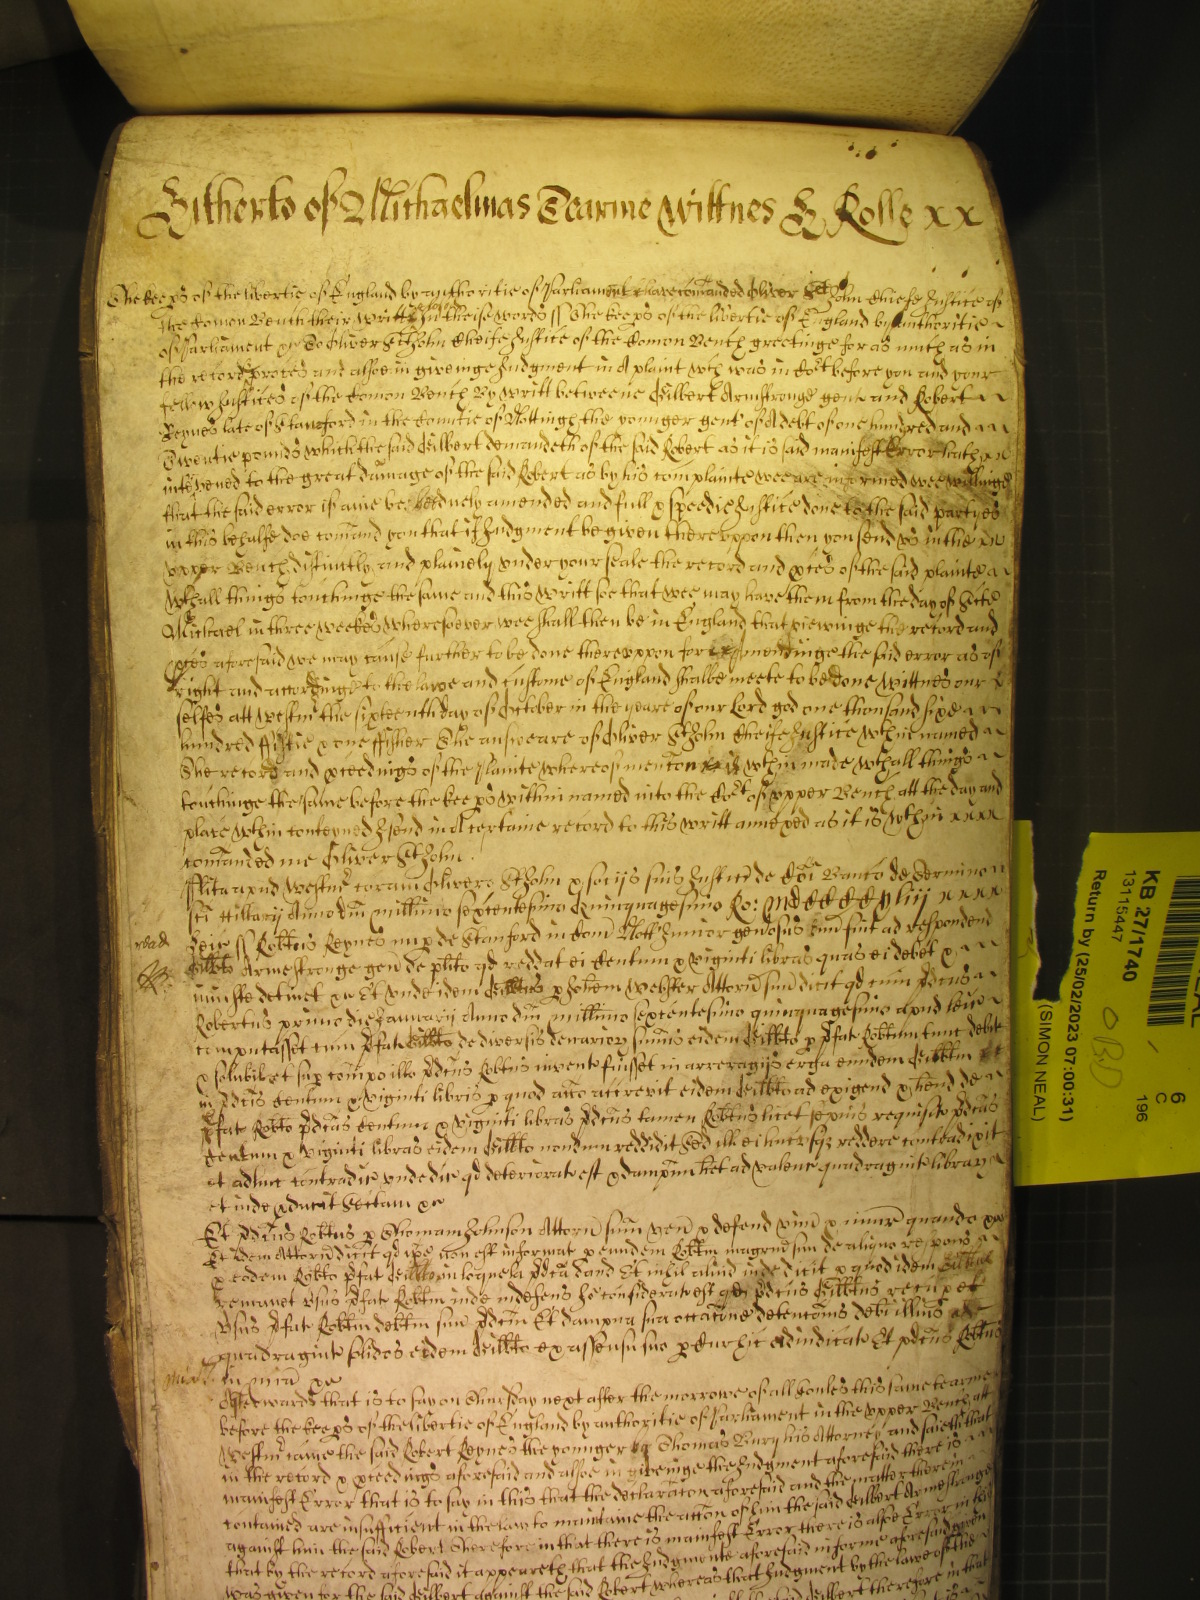 Hitherto of Michaelmas Tearme Wittnes H Rolle xx
The keeps of the libertie of England by authoritie of Parliament have comanded Oliver St John Chiefe Justice of
the Comon Bench their Writt in theise words ss The keeps of the libertie of England by authoritie
of Parliament &c To Oliver St John Cheife Justice of the Comon Bench greetinge for as much as in
the record & proces and alsoe in giveinge Judgment in A plaint wch was in Cort before you and your
fellow Justices of the Comon Bench By writt betweene Gilbert Armstronge gent and Robert
Reynes late of Stanford in the Countie of Nottingh the younger gent of A debt of one hundred and
Twentie pounds which the said Gilbert demandeth of the said Robert as it is said manifest Error hath
intervened to the great damage of the said Robert as by his complainte wee are informed wee willinge
that the said error if anie bee be duely amended and full & speedie Justice done to the said partyes
in this behalfe doe comand you that if Judgment be given thereuppon then you send us in the
upper Bench distinctly and plainely under your seale the record and pces of the said plainte
wth all things touchinge the same and this writt soe that wee may have them from the day of Scte
Michael in three weekes wheresoever wee shall then be in England that viewinge the record and
pces aforesaid we may cause further to be done thereuppon for amendinge the said error as of
right and accordinge to the lawe and custome of England shalbe meete to be done Wittnes our
selfes att Westm the sixteenth day of October in the yeare of our Lord god one thousand sixe
hundred fiftie & one ffisher The answeare of Oliver St John Cheife Justice wthin named
The record and pceedings of the Plainte whereof mencon is wthin made wth all things
touchinge the same before the keeps within named into the Cort of upper Bench att the day and
place wthin conteyned I send in A certaine record to this writt annexed as it is wthin
comanded me Oliver St John
Plita apud Westm coram Olivero St John & socijs suis Justic de Coi Banco de Termino
Sci Hillarij Anno dni millimo sexcentesimo Quinquagesimo Ro:
ss Robtus Reynes nup de Stanford in Com Nott Junior generosus sum fuit ad respondend
Gilbto Armestronge gen de plito qd reddat ei Centum & viginti libras quas ei debet &
iniuste detinet &c Et unde idem Gilbtus p Johem Webster Attorn suum dicit qd cum pdcus
Robertus primo die Januarij Anno dni millimo sexcentesimo quinquagesimo apud
computasset cum pfat Gilbto de diversis denarior summis eidem Gilbto p pfat Robtum tunc debit
& solubil et sup compo illo pdcus Robtus invent fuisset in arreragijs erga eundem Gilbtum
in pdcis Centum & viginti libris p quod acco accrevit eidem Gilbto ad exigend & hend de
pfat Robto pdcas Centum & viginti libras pdcus tamen Robtus licet sepius requisit pdcas
Centum & viginti libras eidem Gilbto nondum reddidit Sed ill ei hucusq reddere contradixit
et adhuc contradic unde dic qd deteriorat est & dampnum het ad valenc quadragint librar
et inde pducit Sectam &c
Et pdcus Robtus p Thomam Johnson Attorn suum ven & defend vim & iniur quando &c
Et idem Attorn dicit qd ipse non est informat p eundem Robtum magrum suum de aliquo respons
p eodem Robto pfat Gilbto in loquela pdca dand Et nichil aliud inde dicit p quod idem Gilbtus
remanet versus pfat Robtum inde indefens Io considerat est qd pdcus Gilbtus recuperet
versus pfat Robtum debitum suum pdcum Et dampna sua occacone detenconis debi illius ad
quadragint solidos eidem Gilbto ex assensu suo p Cur hic adiudicat Et pdcus Robtus
in mia &c
Afterwards that is to say on Thursday next after the morrowe of all Soules this same tearme
before the keeps of the libertie of England by authoritie of Parliament in the upper Bench att
Westm came the said Robert Reynes the younger by Thomas Bury his Attorney and saieth that
in the record & pceedings aforesaid and alsoe in giveinge the Judgment aforesaid there is
manifest Error that is to say in this that the declaracon aforesaid and the matter therein
contained are insufficient in the law to maintaine the accon of him the said Gilbert Armestronge
against him the said Robert Therefore in that there is manifest Error there is alsoe Error in this
that by the record aforesaid it appeareth that the Judgmente aforesaid in forme aforesaid given
was given for the said Gilbert against the said Robert whereas that Judgment by the lawe of the
KB 27/1740
13115447
Return by (25/02/2023 07:00:31)
(SIMON NEAL)
6
C
196